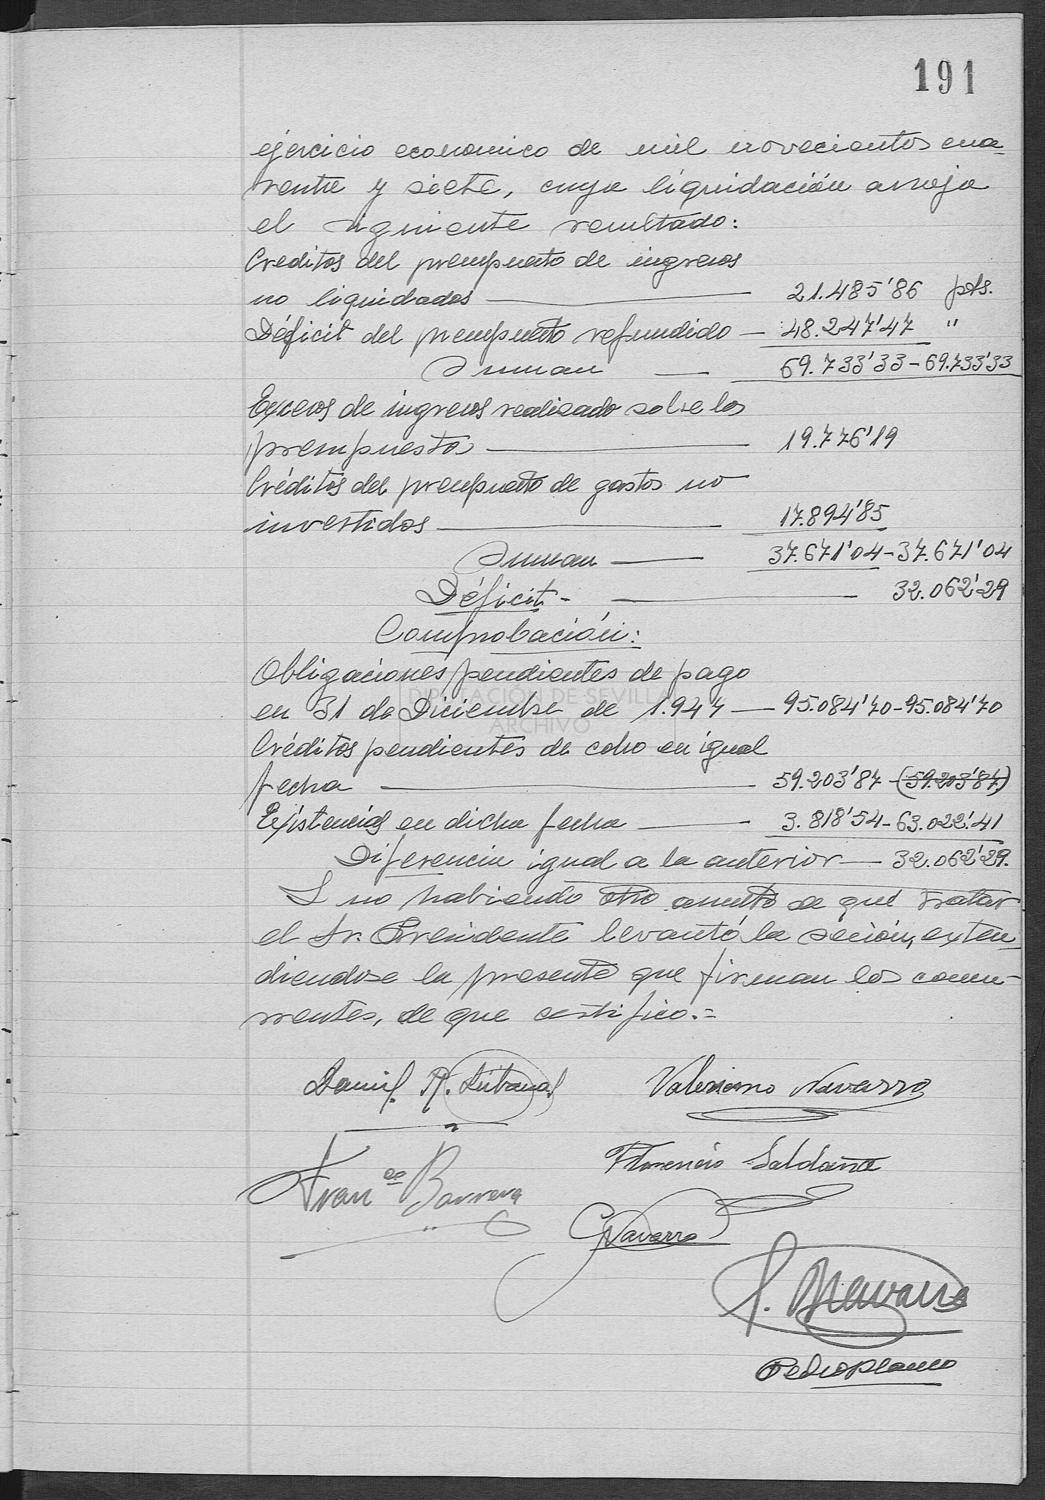 191
ejercicio economico de mil novecientos cua-
renta y siete, cuya liquidación arroja
el siguiente resultado:
Creditos del presupuesto de ingresos
no liquidados — 21.485'86 pts.
Déficit del presupuesto refundido — 48.247'47 "
Suman — 69.733'33 - 69.733'33
Exceso de ingresos realizado sobre los
presupuestos — 19.776'19
Créditos del presupuesto de gastos no
invertidos — 17.894'85
Suman — 37.671'04 - 37.671'04
Déficit - — 32.062'29
Comprobación:
Obligaciones pendientes de pago
en 31 de Diciembre de 1.947 — 95.084'70 - 95.084'70
DIPUTACIÓN DE SEVILLA
ARCHIVO
Créditos pendientes de cobro en igual
fecha — 59.203'87 - (59.203'87)
Existencias en dicha fecha — 3.818'54 - 63.022'41
Diferencia igual a la anterior — 32.062'29.
I no habiendo otro asunto de que tratar
el Sr. Presidente levantó la seción, exten
diendose la presente que firman los concu-
rrentes, de que certifico.=
Daniel R.
Valeriano Navarro
Franco Barrera
Florencio Saldaña
G Navarro
Navarro
Pedro Blanco